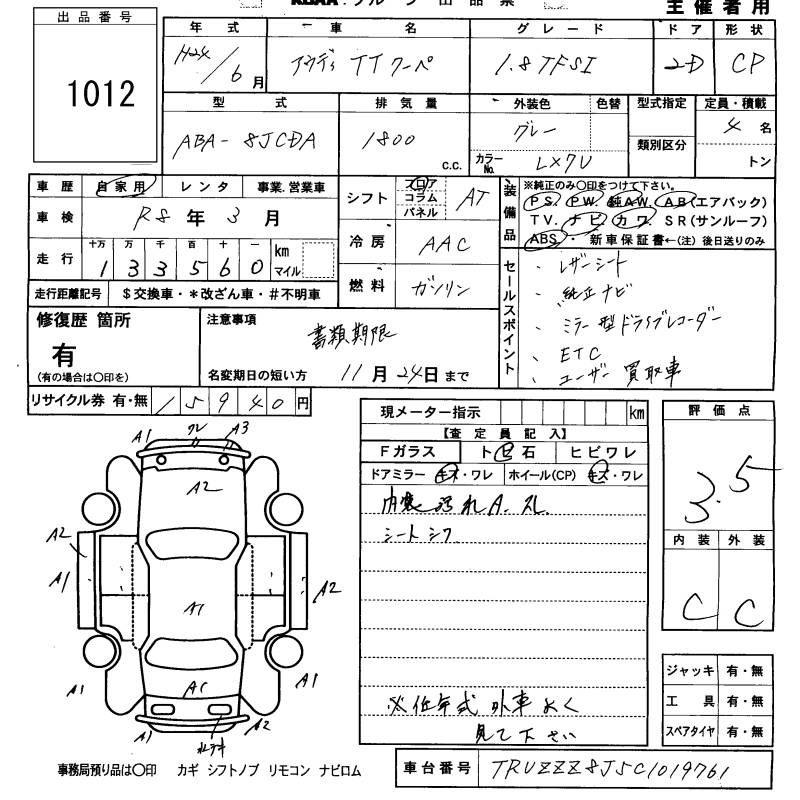 出品番号
1012
主催者用
年式 車名 グレード ドア 形状
H24/6月 アウディ TTクーペ 1.8TFSI 2D CP
型式 排気量 外装色 色替 型式指定 定員・積載
ABA-8JCDA 1800 c.c. グレー 4名
カラーNo. LX7U 類別区分 トン
車歴 自家用 レンタ 事業.営業車
車検 R8年3月
走行 十万 万 千 百 十 一 km マイル
133560
走行距離記号 $交換車・*改ざん車・#不明車
シフト フロア コラム パネル AT
冷房 AAC
燃料 ガソリン
装備品 ※純正のみ〇印をつけて下さい。
PS. PW. 純AW. AB(エアバック)
TV. ナビ カワ. SR(サンルーフ)
ABS・ 新車保証書←(注)後日送りのみ
セールスポイント
・レザーシート
・純正ナビ
・ミラー型ドライブレコーダー
・ETC
・ユーザー買取車
修復歴 箇所
有
(有の場合は〇印を)
注意事項
書類期限
名変期日の短い方 11月24日まで
リサイクル券 有・無 15940円
現メーター指示 km
【査定員記入】
Fガラス トビ石 ヒビワレ
ドアミラー キズ・ワレ ホイール(CP) キズ・ワレ
内装汚れA.スレ
シートシワ
※低年式 外車 よく
見て下さい
評価点
3.5
内装 外装
C C
ジャッキ 有・無
工具 有・無
スペアタイヤ 有・無
A1 ワレ A3
A2
A2
A1 A1 A2
A1 A1 A1
A1 A2
事務局預り品は〇印 カギ シフトノブ リモコン ナビロム
車台番号 TRUZZZ8J5C1019761